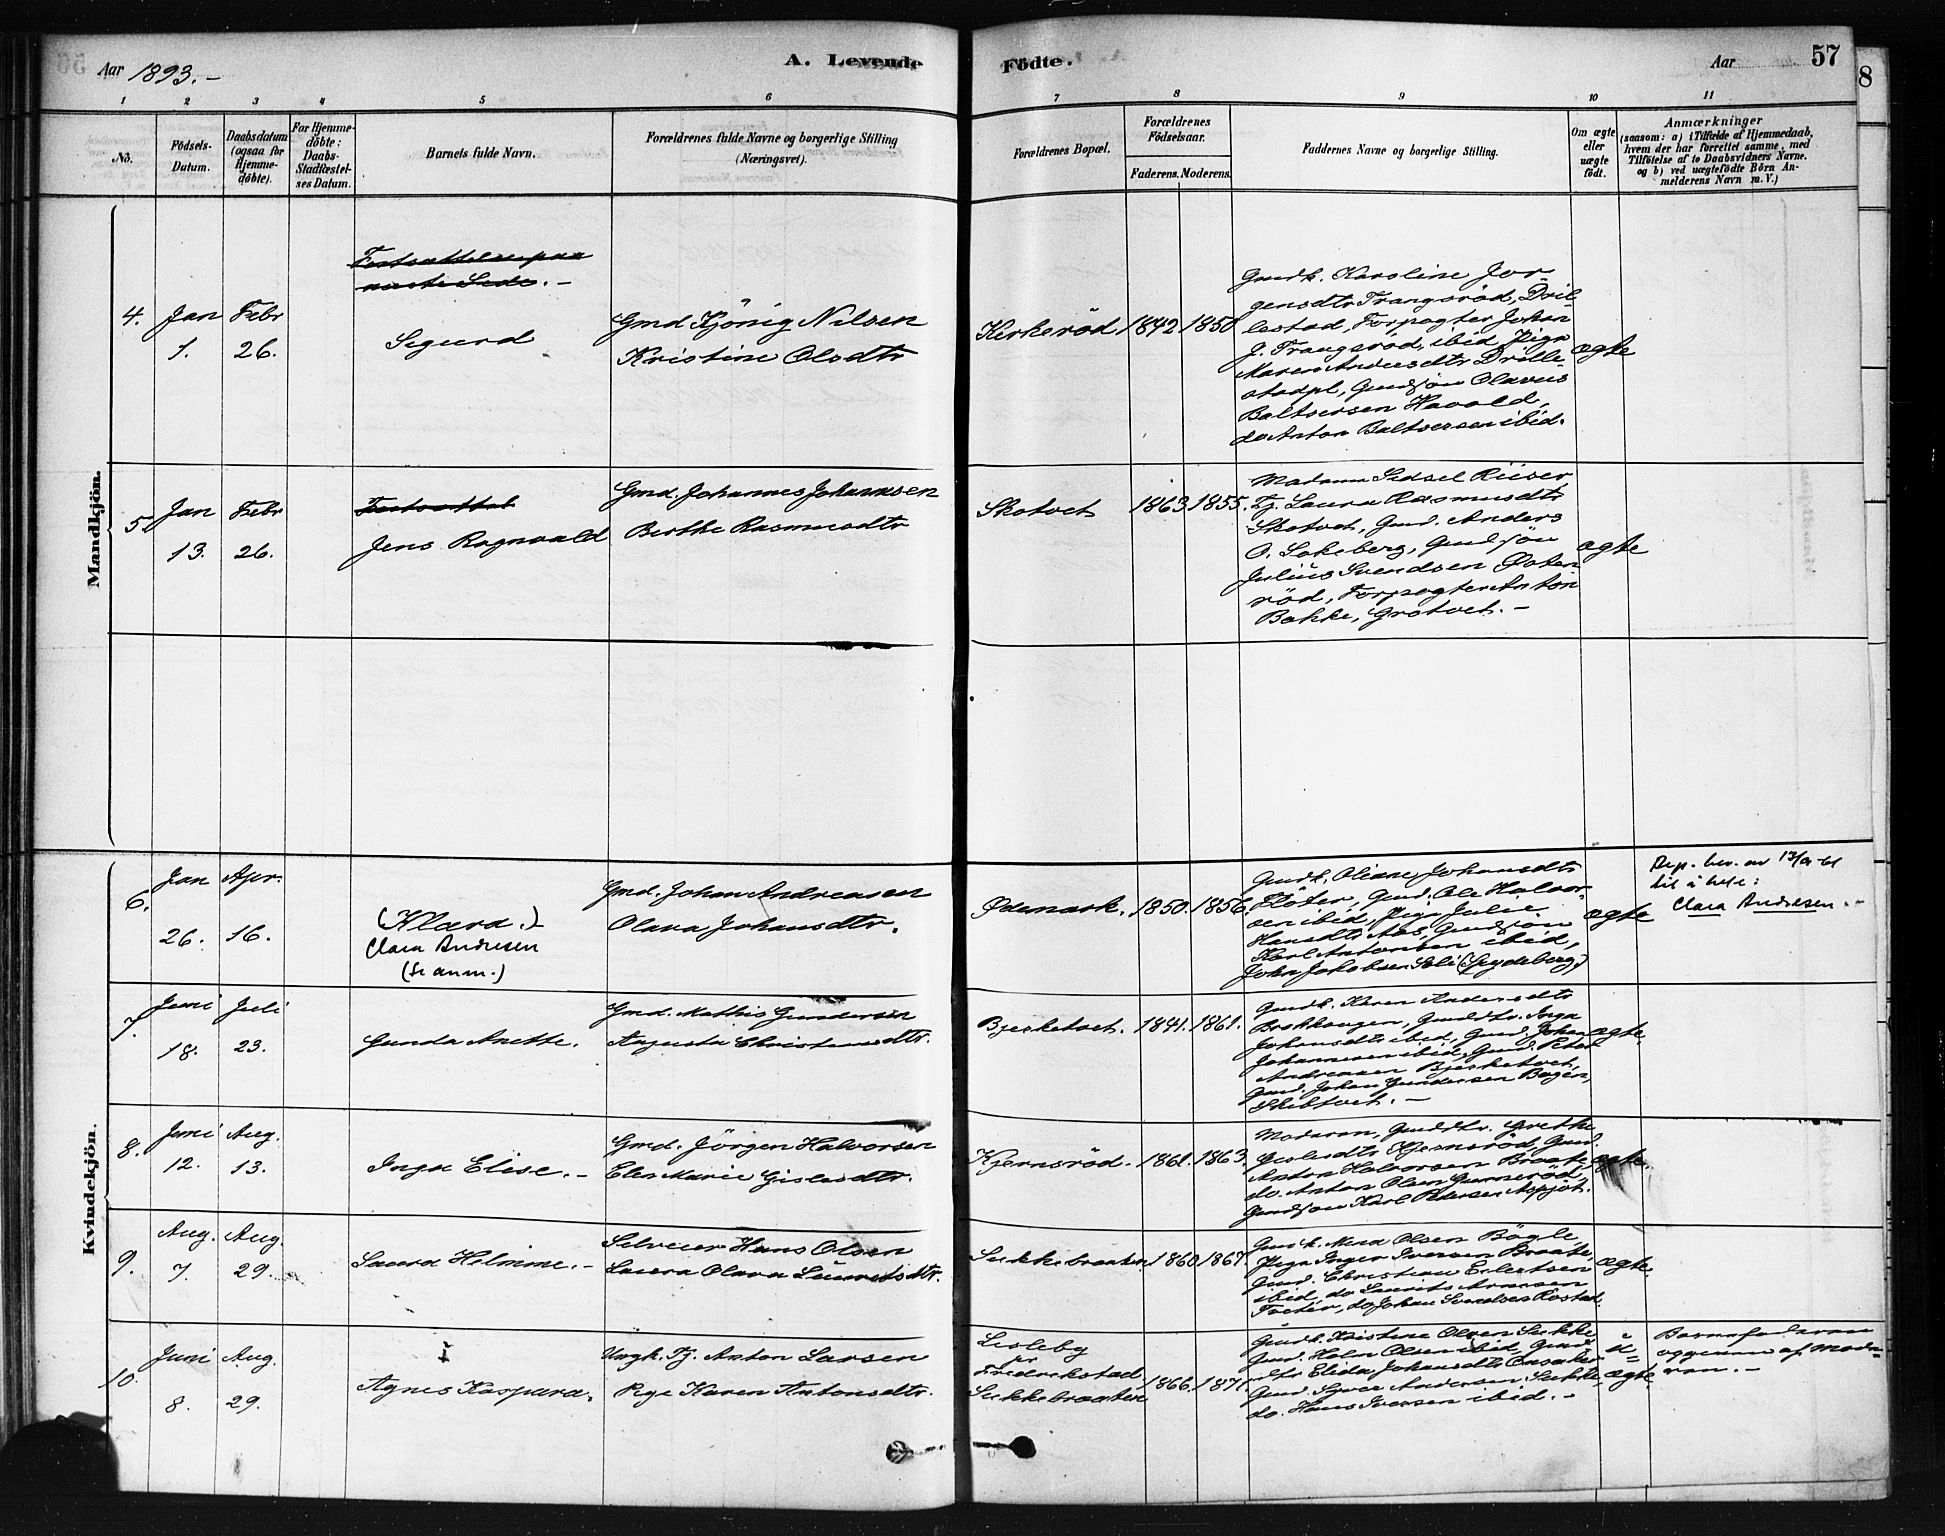 Aar 1893.-
A. Levende
Födte.
Aar
57
8
1 2 3 4 5 6 7 8 9 10 11
No.
Födsels-
Datum.
Daabsdatum
(ogsaa for
Hjemme-
döbte).
For Hjemme-
döbte:
Daabs-
Stadfæstel-
ses Datum.
Barnets fulde Navn.
Forældrenes fulde Navne og borgerlige Stilling
(Næringsvei).
Forældrenes Bopæl.
Forældrenes
Födselsaar.
Faderens. Moderens.
Faddernes Navne og borgerlige Stilling.
Om ægte
eller
uægte
födt.
Anmærkninger
(saasom: a) i Tilfælde af Hjemmedaab,
hvem der har forrettet samme, med
Tilföielse af to Daabsvidners Navne.
og b) ved uægtefödte Börn An-
melderens Navn m. V.)
Mandkjön.
4.
Jan
1.
Febr
26.
Fortsættelse paa
næste Side.-
Sigurd
Gmd Kjönig Nilsen
Kristine Olsdtr
Kirkeröd
1842
1850
Gmdk. Karoline Jor-
gensdtr Trangsröd, Dril-
lestad, Forpagter Johan
J. Trangsröd, ibid, Pige
Maren Andersdtr Drille-
stadpl, Gmdsjön Olavus
Baltsersen Havold,
do Anton Baltsersen ibid.
ægte
5
Jan
13.
Febr
26.
Fortsættel
Jens Ragnvald
Gmd. Johannes Johannsen
Berthe Rasmusdtr
Skotvet
1863
1855.
Madame Sidsel Riiser
Tj. Laura Rasmusdtr
Skotvet, Gmd. Anders
O. Sakeberg, Gmdsjön
Julius Svendsen Østen-
röd, Forpagter Anton
Bakke, Grotvet.-
ægte
Kvindekjön.
6.
Jan
26.
Apr.
16.
(Klara.)
Clara Andresen
(Se anm.)
Gmd. Johan Andreasen
Olava Johansdtr.
Ødemark.
1850.
1856.
Gmdk. Oliane Johansdtr
Fløter, Gmd. Ole Halvor-
sen ibid, Pige Julie
Hansdtr Aas, Gmdsjön
Karl Antonsen ibid,
John Jakobsen Soli (Spydeberg)
ægte
Dep. bev. av 13/9-61
til å hete:
Clara Andresen.-
7.
Juni
18.
Juli
23.
Gunda Anette.
Gmd. Mathis Gundersen
Augusta Christensdtr.
Bjerketvet.
1841.
1861.
Gmdk. Karen Andersdtr
Brekhaugen, Gmddtr. Inga
Johansdtr ibid, Gmd. Johan
Johannesen ibid, Gmd. Peter
Andreasen Bjerketvet,
Gmd. Johan Gundersen Bøgen,
Skibtvet.-
ægte.
8.
Juni
12.
Aug.
13.
Inga Elise.-
Gmd. Jörgen Halvorsen
Elen Marie Gislesdtr.
Kjernsröd.
1861.
1863.
Moderen, Gmddtr. Grethe
Gislesdtr Kjernsröd, Gmd.
Anton Halvorsen Braate,
do. Anton Olsen Gunneröd,
Gmdsjön Karl Pedersen Aspjöt.
ægte.
9.
Aug.
7.
Aug.
29.
Laura Helmine.-
Selveier Hans Olsen
Laura Olava Lauritsdtr.
Sukkebraaten
1860
1867.
Gmdk. Mina Olsen Bögle,
Pige Inger Iversen Braate,
Gmd. Christian Eilertsen
ibid, do Laurits Arnesen
do Johan Svendsen Rostad.
ægte.
10.
Juni
8.
Aug.
29.
Agnes Kaspara.
Ungk. Tj. Anton Larsen
Pige Karen Antonsdtr.
Lisleby
pr
Fredrikstad
Sukkebraaten
1866.
1871.
Gmdk. Kristine Olsen Sukke,
Gmd. Halv Olsen ibid, Gmd-
dtr Elida Johansdtr Onsaker
Gmd. Syver Andersen Sukke,
do. Hans Iversen ibid.-
u=
ægte.
Barnefaderen
opgiven af Mode-
ren.-